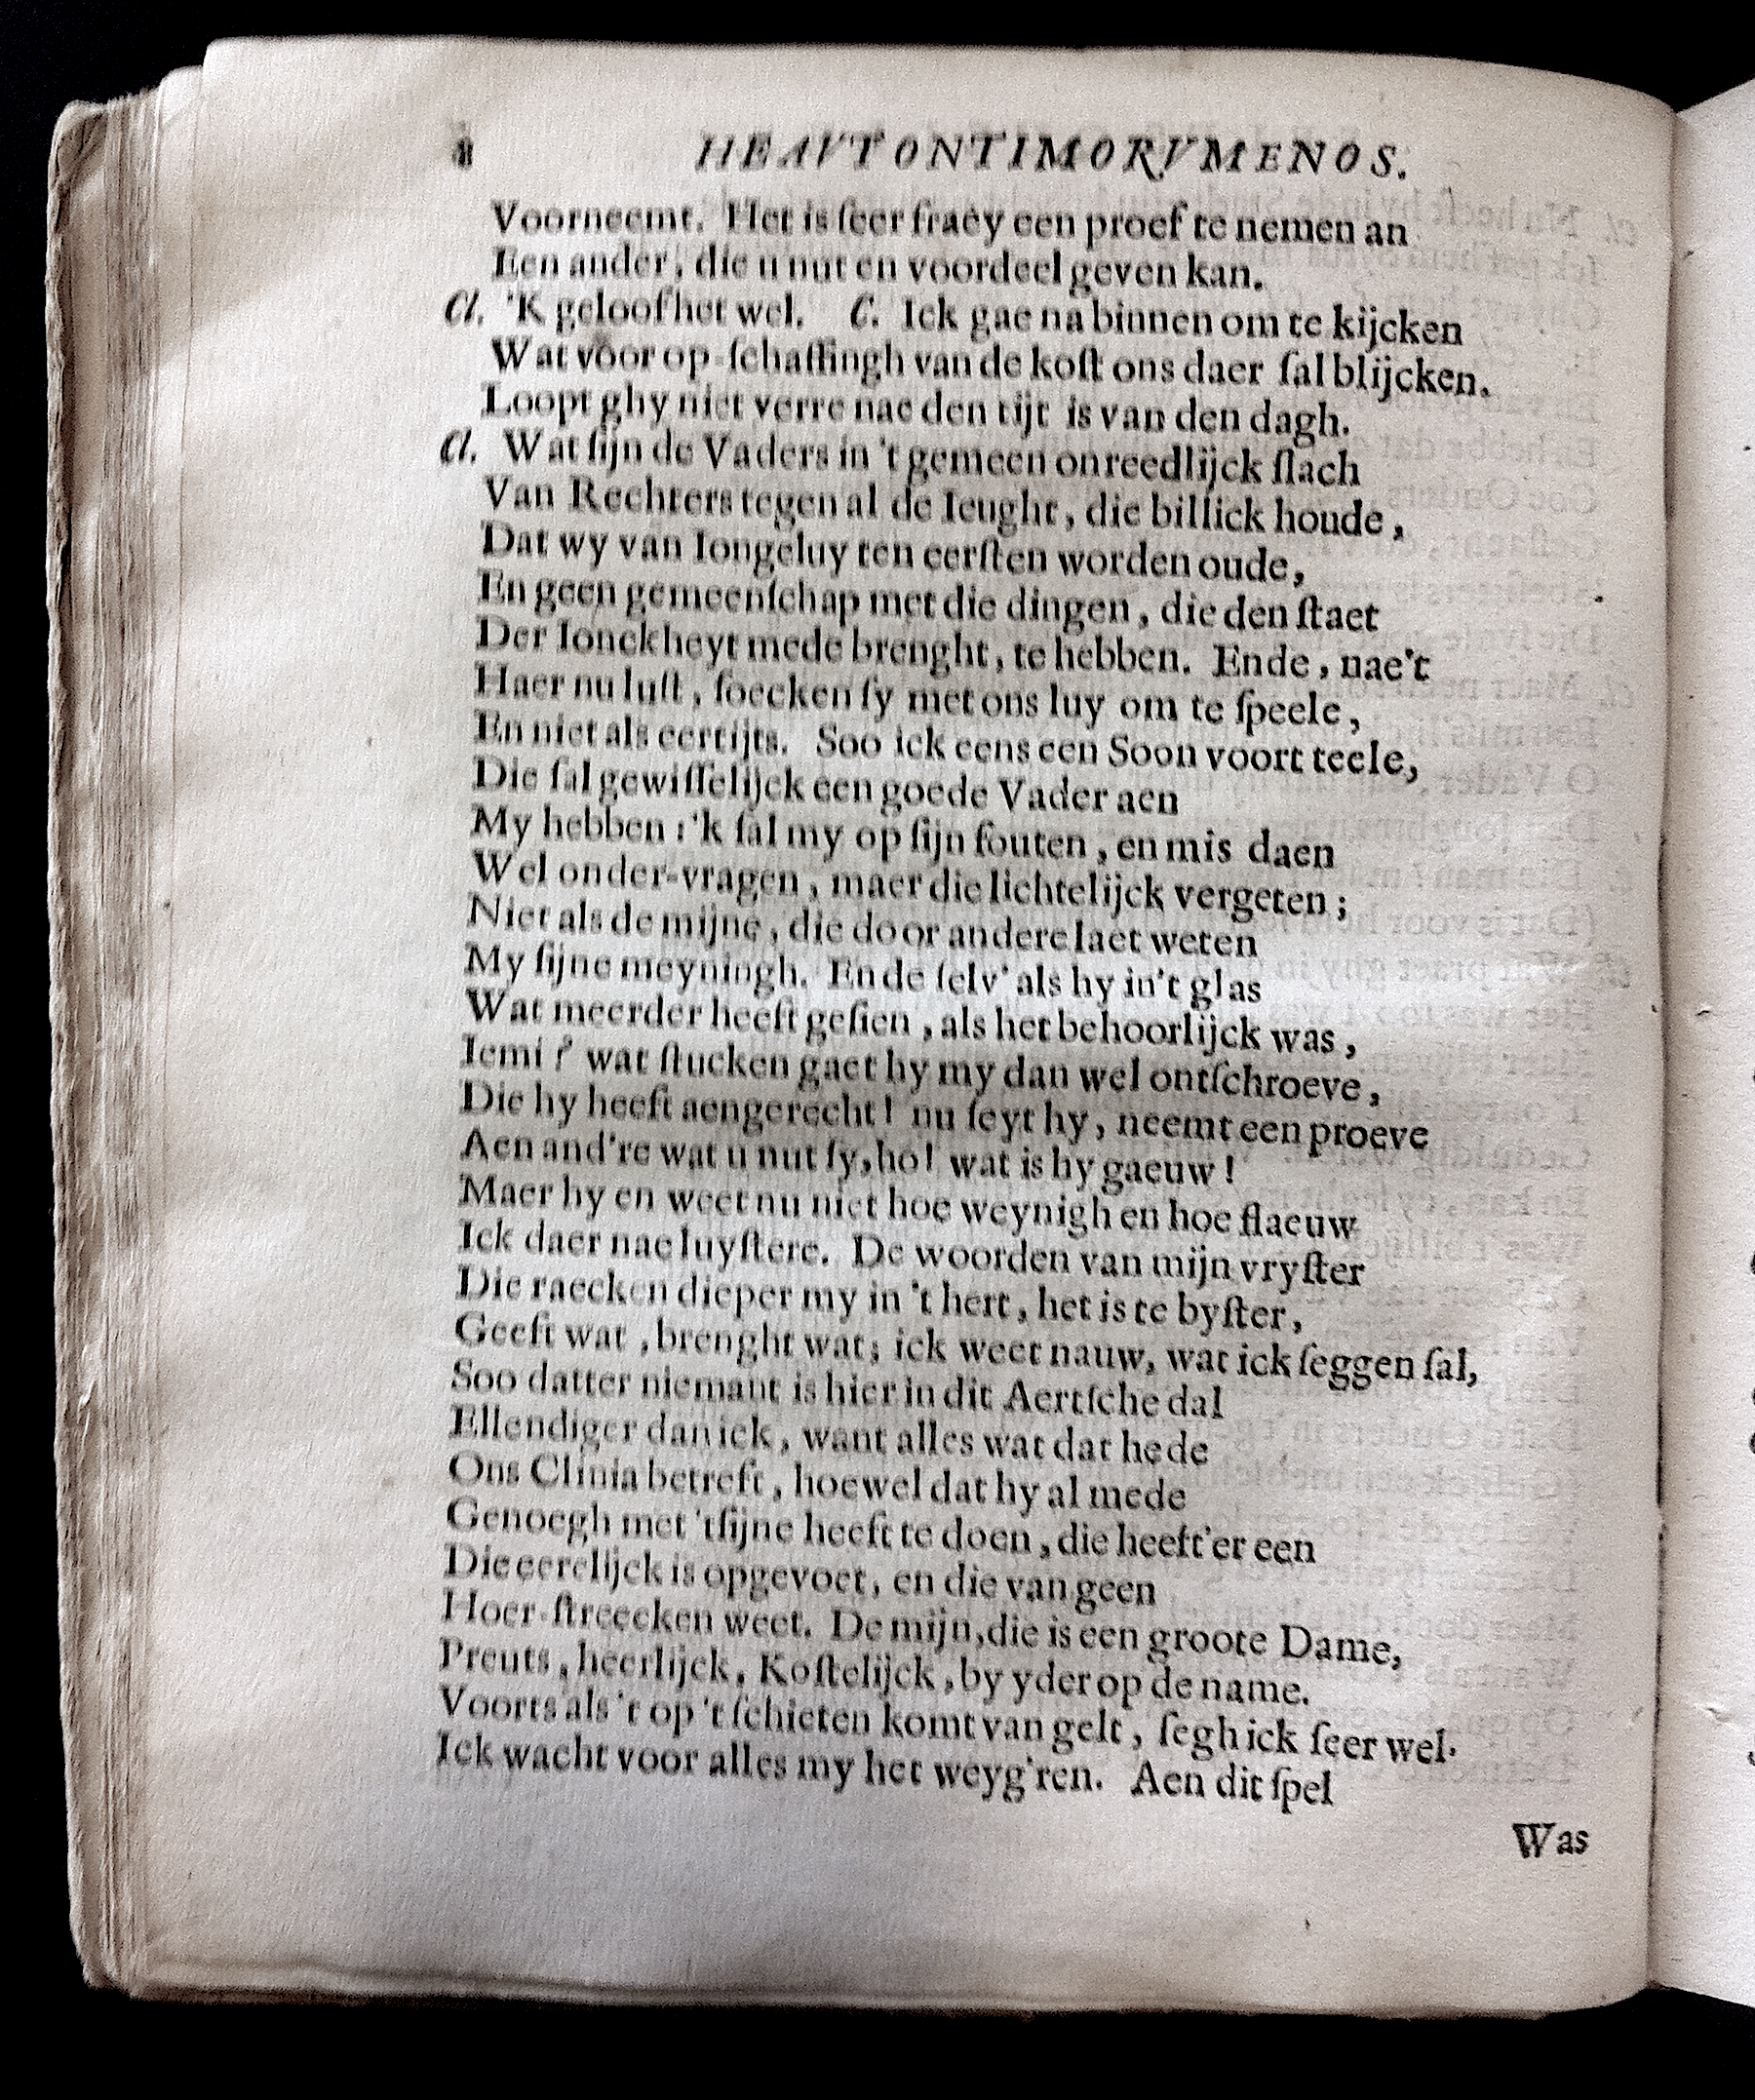 8 HEAVTONTIMORVMENOS.
Voorneemt. Het is ſeer fraey een proef te nemen an
Een ander, die u nut en voordeel geven kan.
Cl. 'K geloof het wel. C. Ick gae na binnen om te kijcken
Wat voor op-ſchaffingh van de koſt ons daer ſal blijcken.
Loopt ghy niet verre nae den tijt is van den dagh.
Cl. Wat ſijn de Vaders in 't gemeen onreedlijck ſlach
Van Rechters tegen al de Ieught, die billick houde,
Dat wy van Iongeluy ten eerſten worden oude,
En geen gemeenſchap met die dingen, die den ſtaet
Der Ionckheyt mede brenght, te hebben. Ende, nae't
Haer nu luſt, ſoecken ſy met ons luy om te ſpeele,
En niet als eertijts. Soo ick eens een Soon voort teele,
Die ſal gewiſſelijck een goede Vader aen
My hebben: 'k ſal my op ſijn fouten, en mis daen
Wel onder-vragen, maer die lichtelijck vergeten;
Niet als de mijne, die door andere laet weten
My ſijne meyningh. Ende ſelv' als hy in't glas
Wat meerder heeft geſien, als het behoorlijck was,
Iemi? wat ſtucken gaet hy my dan wel ontſchroeve,
Die hy heeft aengerecht! nu ſeyt hy, neemt een proeve
Aen and're wat u nut ſy, ho! wat is hy gaeuw!
Maer hy en weet nu niet hoe weynigh en hoe flaeuw
Ick daer nae luyſtere. De woorden van mijn vryſter
Die raecken dieper my in 't hert, het is te byſter,
Geeft wat, brenght wat; ick weet nauw, wat ick ſeggen ſal,
Soo datter niemant is hier in dit Aertſche dal
Ellendiger dan ick, want alles wat dat hede
Ons Clinia betreft, hoewel dat hy al mede
Genoegh met 'tſijne heeft te doen, die heeft'er een
Die eerelijck is opgevoet, en die van geen
Hoer-ſtreecken weet. De mijn, die is een groote Dame,
Preuts, heerlijck, Koſtelijck, by yder op de name.
Voorts als 't op 't ſchieten komt van gelt, ſegh ick ſeer wel.
Ick wacht voor alles my het weyg'ren. Aen dit ſpel
Was